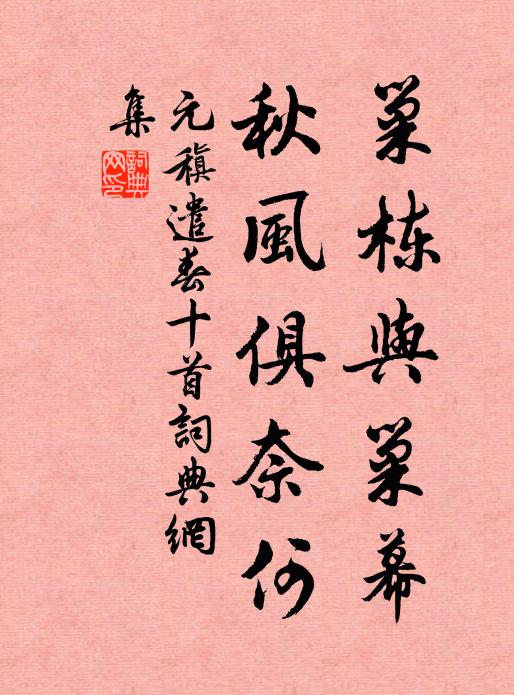 巢栋與巢幕
秋風俱奈何
元稹遣春十首詞典網
集
詞典
网印